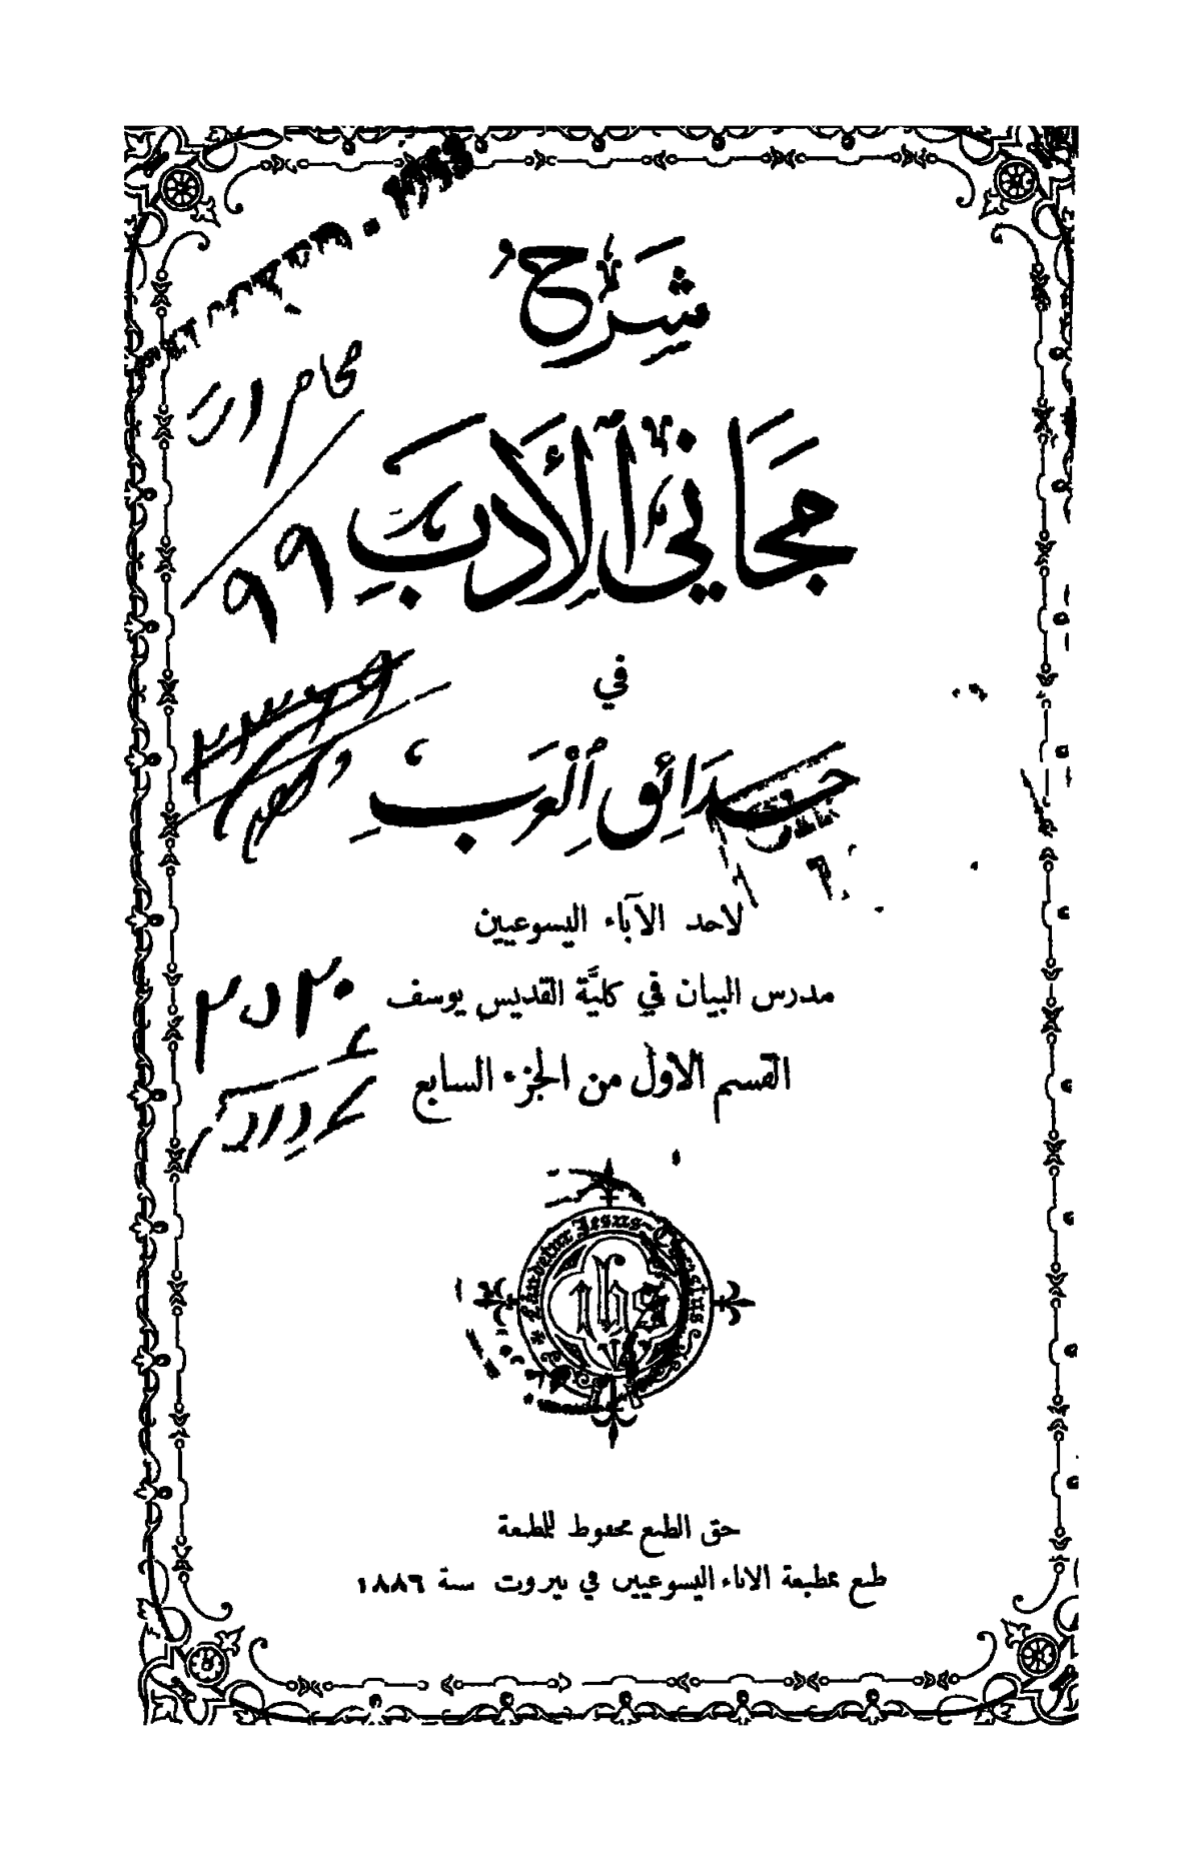 شَرْحُ
مَجَانِي ٱلْأَدَبِ
في
حَدَائِقِ ٱلْعَرَبِ
لاحد الآباء اليسوعيين
مدرس البيان في كليَّة القديس يوسف
القسم الاول من الجزء السابع
Laudetur Jesus Christus
ihs
حق الطبع محفوظ للمطبعة
طبع بمطبعة الاباء اليسوعيين في بيروت سنة ١٨٨٦
٩٩